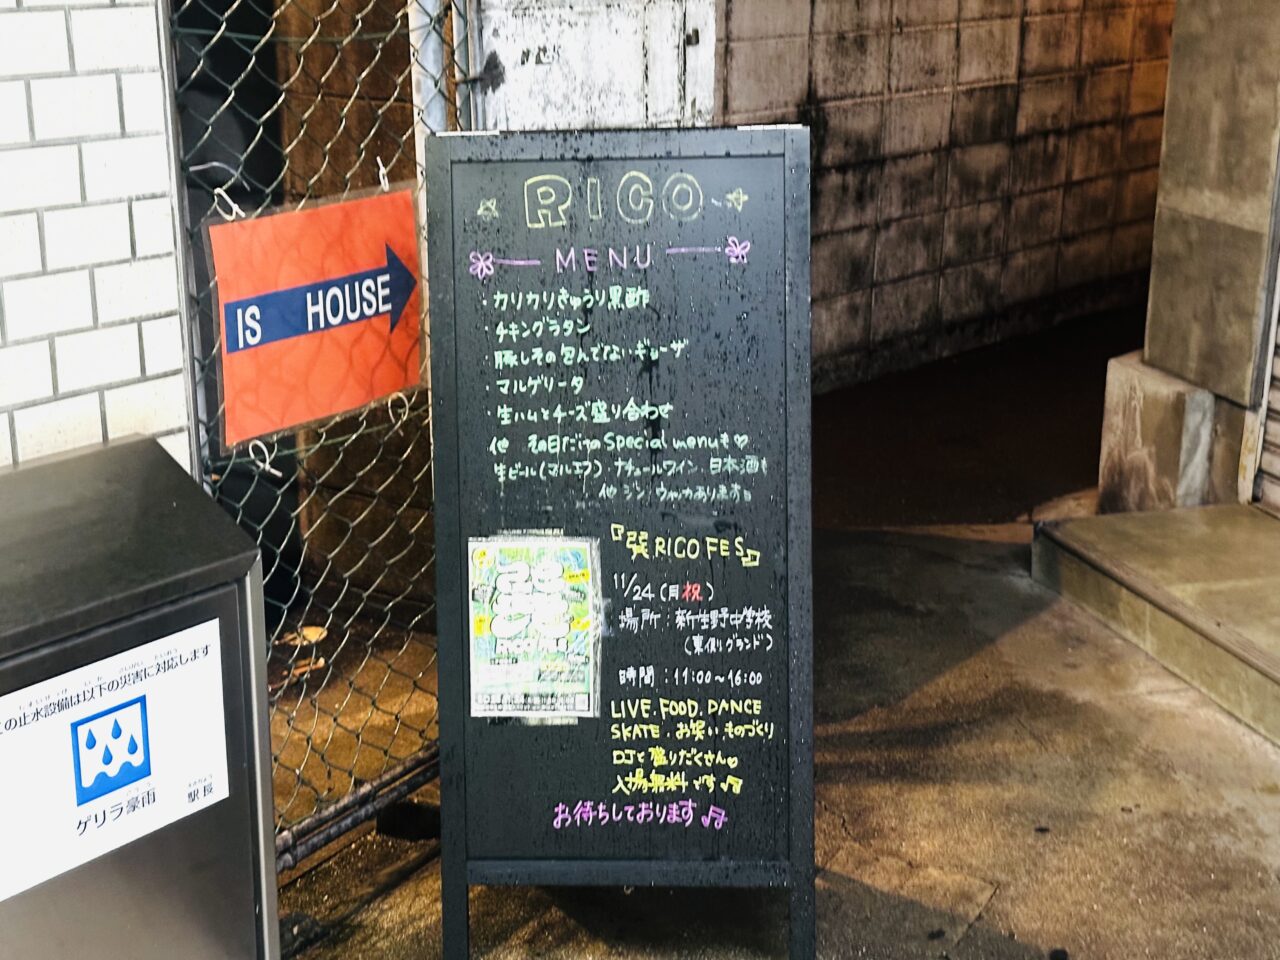 IS HOUSE
RICO
MENU
・カリカリきゅうり黒酢
・チキングラタン
・豚しその包んでないギョーザ
・マルゲリータ
・生ハムとチーズ盛り合わせ
他 その日だけのSpecial menuも♡
生ビール(マルエフ)・ナチュールワイン、日本酒も
他 ジン、ウォッカあります
RICO FES
11/24(月祝)
場所:新生野中学校
(東側グランド)
時間:11:00〜16:00
LIVE. FOOD. DANCE
SKATE. お笑い. ものづくり
ロゴと盛りだくさん♡
入場無料です♫
お待ちしております♫
この止水設備は以下の災害に対応します
ゲリラ豪雨
駅長